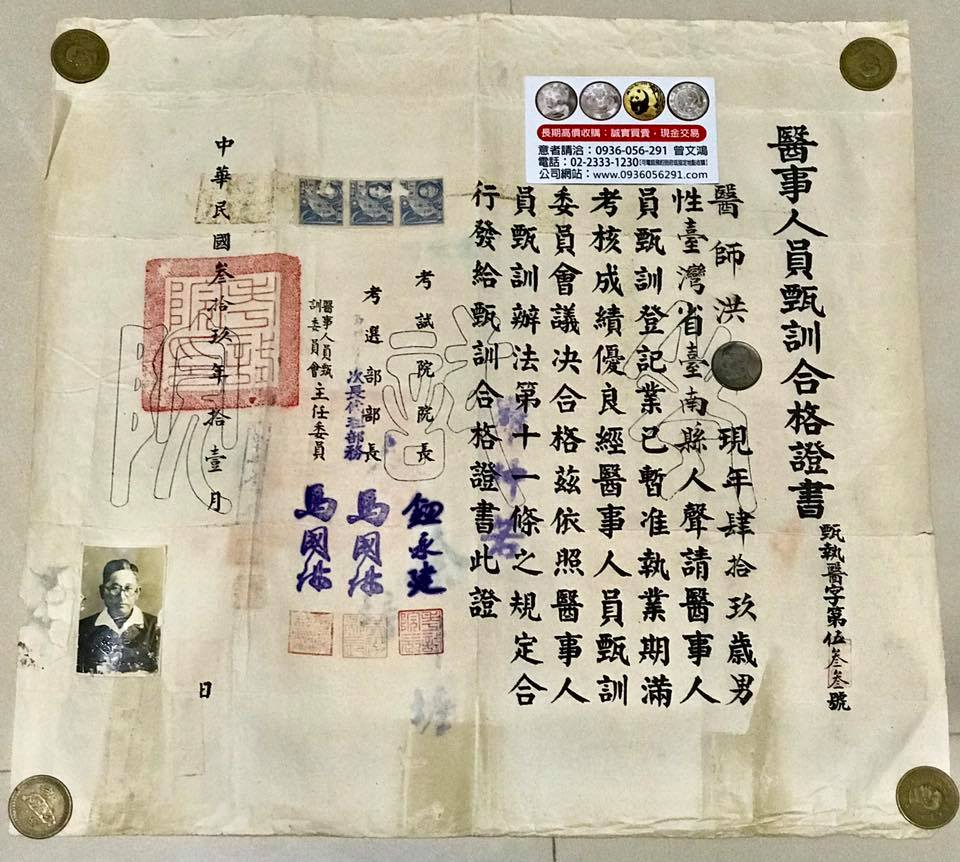 醫事人員甄訓合格證書
甄執醫字第伍叁叁號
醫師洪 現年肆拾玖歲男
性臺灣省臺南縣人聲請醫事人
員甄訓登記業已暫准執業期滿
考核成績優良經醫事人員甄訓
委員會議決合格茲依照醫事人
員甄訓辦法第十一條之規定合
行發給甄訓合格證書此證
考試院院長 鈕永建
考選部部長
次長代理部務 馬國琳
醫事人員甄訓委員會主任委員 馬國琳
中華民國叁拾玖年拾壹月 日
長期高價收購：誠實買賣，現金交易
意者請洽：0936-056-291 曾文鴻
電話：02-2333-1230
公司網站：www.0936056291.com